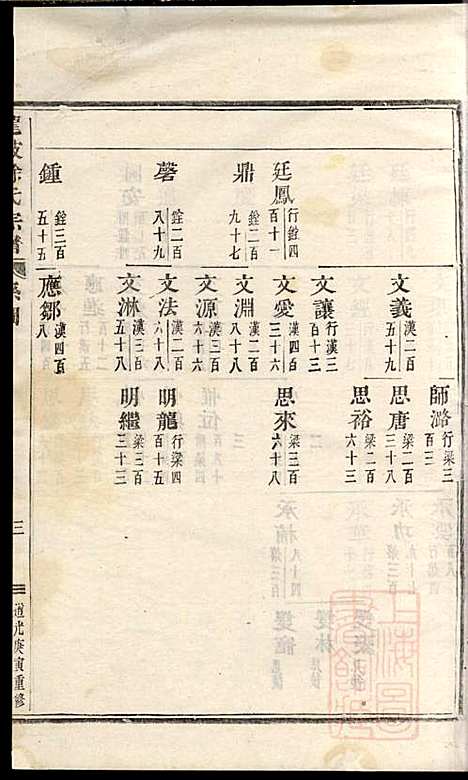 師潞 行梁三百三
文義 漢二百五十九
思唐 梁二百三十八
思裕 梁二百六十三
文讓 行漢三百十三
廷鳳 行銓四百二十一
文愛 漢四百三十六
思來 梁三百六十八
鼎 銓二百九十七
文淵 漢二百八十八
文源 漢三百六十六
磬 銓二百八十九
文法 漢三百六十八
明龍 行梁四百十五
文淋 漢三百五十八
明繼 梁三百三十三
鍾 銓三百五十五
應鄒 漢四百八
徐氏宗譜
系圖
三
道光庚寅重修